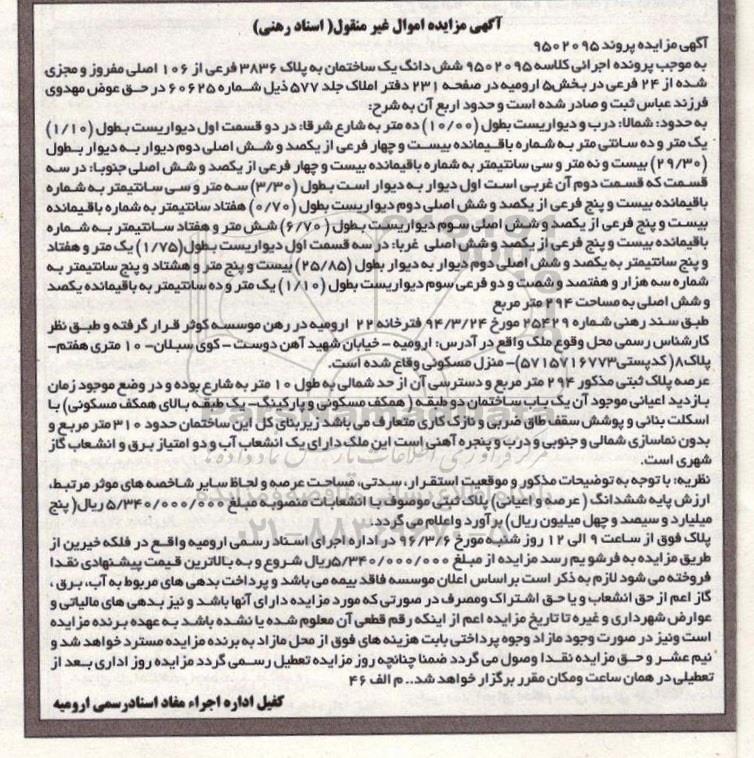 آگهی مزایده اموال غیر منقول( اسناد رهنی)
آگهی مزایده پروند ۹۵۰۲۰۹۵
به موجب پرونده اجرائی کلاسه ۹۵۰۲۰۹۵ شش دانگ یک ساختمان به پلاک ۳۸۳۶ فرعی از ۱۰۶ اصلی مفروز و مجزی
شده از ۲۴ فرعی در بخش۵ ارومیه در صفحه ۲۳۱ دفتر املاک جلد ۵۷۷ ذیل شماره ۶۰۶۲۵ در حق عوض مهدوی
فرزند عباس ثبت و صادر شده است و حدود اربع آن به شرح:
به حدود: شمالا: درب و دیواریست بطول (۱۰/۰۰) ده متر به شارع شرقا: در دو قسمت اول دیواریست بطول (۱/۱۰)
یک متر و ده سانتی متر به شماره باقیمانده بیست و چهار فرعی از یکصد و شش اصلی دوم دیوار به دیوار بطول
(۲۹/۳۰) بیست و نه متر و سی سانتیمتر به شماره باقیمانده بیست و چهار فرعی از یکصد و شش اصلی جنوبا: در سه
قسمت که قسمت دوم آن غربی است اول دیوار به دیوار است بطول (۳/۳۰) سه متر و سی سانتیمتر به شماره
باقیمانده بیست و پنج فرعی از یکصد و شش اصلی دوم دیواریست بطول (۰/۷۰) هفتاد سانتیمتر به شماره باقیمانده
بیست و پنج فرعی از یکصد و شش اصلی سوم دیواریست بطول (۶/۷۰) شش متر و هفتاد سانتیمتر به شماره
باقیمانده بیست و پنج فرعی از یکصد و شش اصلی غربا: در سه قسمت اول دیواریست بطول(۱/۷۵) یک متر و هفتاد
و پنج سانتیمتر به یکصد و شش اصلی دوم دیوار به دیوار بطول (۲۵/۸۵) بیست و پنج متر و هشتاد و پنج سانتیمتر به
شماره سه هزار و هفتصد و شصت و دو فرعی سوم دیواریست بطول (۱/۱۰) یک متر و ده سانتیمتر به باقیمانده یکصد
و شش اصلی به مساحت ۲۹۴ متر مربع
طبق سند رهنی شماره ۲۵۴۲۹ مورخ ۹۴/۳/۲۴ دفترخانه ۲۲ ارومیه در رهن موسسه کوثر قرار گرفته و طبق نظر
کارشناس رسمی محل وقوع ملک واقع در آدرس: ارومیه - خیابان شهید آهن دوست - کوی سبلان- ۱۰ متری هفتم-
پلاک۸( کدپستی۵۷۱۵۷۱۶۷۷۳)- منزل مسکونی وقاع شده است.
عرصه پلاک ثبتی مذکور ۲۹۴ متر مربع و دسترسی آن از حد شمالی به طول ۱۰ متر به شارع بوده و در وضع موجود زمان
بازدید اعیانی موجود آن یک باب ساختمان دو طبقه ( همکف مسکونی و پارکینگ- یک طبقه بالای همکف مسکونی) با
اسکلت بنائی و پوشش سقف طاق ضربی و نازک کاری متعارف می باشد زیربنای کل این ساختمان حدود ۳۱۰ متر مربع و
بدون نماسازی شمالی و جنوبی و درب و پنجره آهنی است این ملک دارای یک انشعاب آب و دو امتیاز برق و انشعاب گاز
شهری است.
نظریه: با توجه به توضیحات مذکور و موقعیت استقرار، سندی، مساحت عرصه و لحاظ سایر شاخصه های موثر مرتبط،
ارزش پایه ششدانگ ( عرصه و اعیانی) پلاک ثبتی موصوف با انشعابات منصوبه مبلغ ۵/۳۴۰/۰۰۰/۰۰۰ ریال( پنج
میلیارد و سیصد و چهل میلیون ریال) برآورد و اعلام می گردد.
پلاک فوق از ساعت ۹ الی ۱۲ روز شنبه مورخ ۹۶/۳/۶ در اداره اجرای اسناد رسمی ارومیه واقع در فلکه خیرین از
طریق مزایده به فروش می رسد مزایده از مبلغ ۵/۳۴۰/۰۰۰/۰۰۰ریال شروع و به بالاترین قیمت پیشنهادی نقدا
فروخته می شود لازم به ذکر است بر اساس اعلان موسسه فاقد بیمه می باشد و پرداخت بدهی های مربوط به آب، برق ،
گاز اعم از حق انشعاب و یا حق اشتراک ومصرف در صورتی که مورد مزایده دارای آنها باشد و نیز بدهی های مالیاتی و
عوارض شهرداری و غیره تا تاریخ مزایده اعم از اینکه رقم قطعی آن معلوم شده یا نشده باشد به عهده برنده مزایده
است ونیز در صورت وجود مازاد وجوه پرداختی بابت هزینه های فوق از محل مازاد به برنده مزایده مسترد خواهد شد و
نیم عشر و حق مزایده نقدا وصول می گردد ضمنا چنانچه روز مزایده تعطیل رسمی گردد مزایده روز اداری بعد از
تعطیلی در همان ساعت ومکان مقرر برگزار خواهد شد.. م الف ۴۶
کفیل اداره اجراء مفاد اسنادرسمی ارومیه